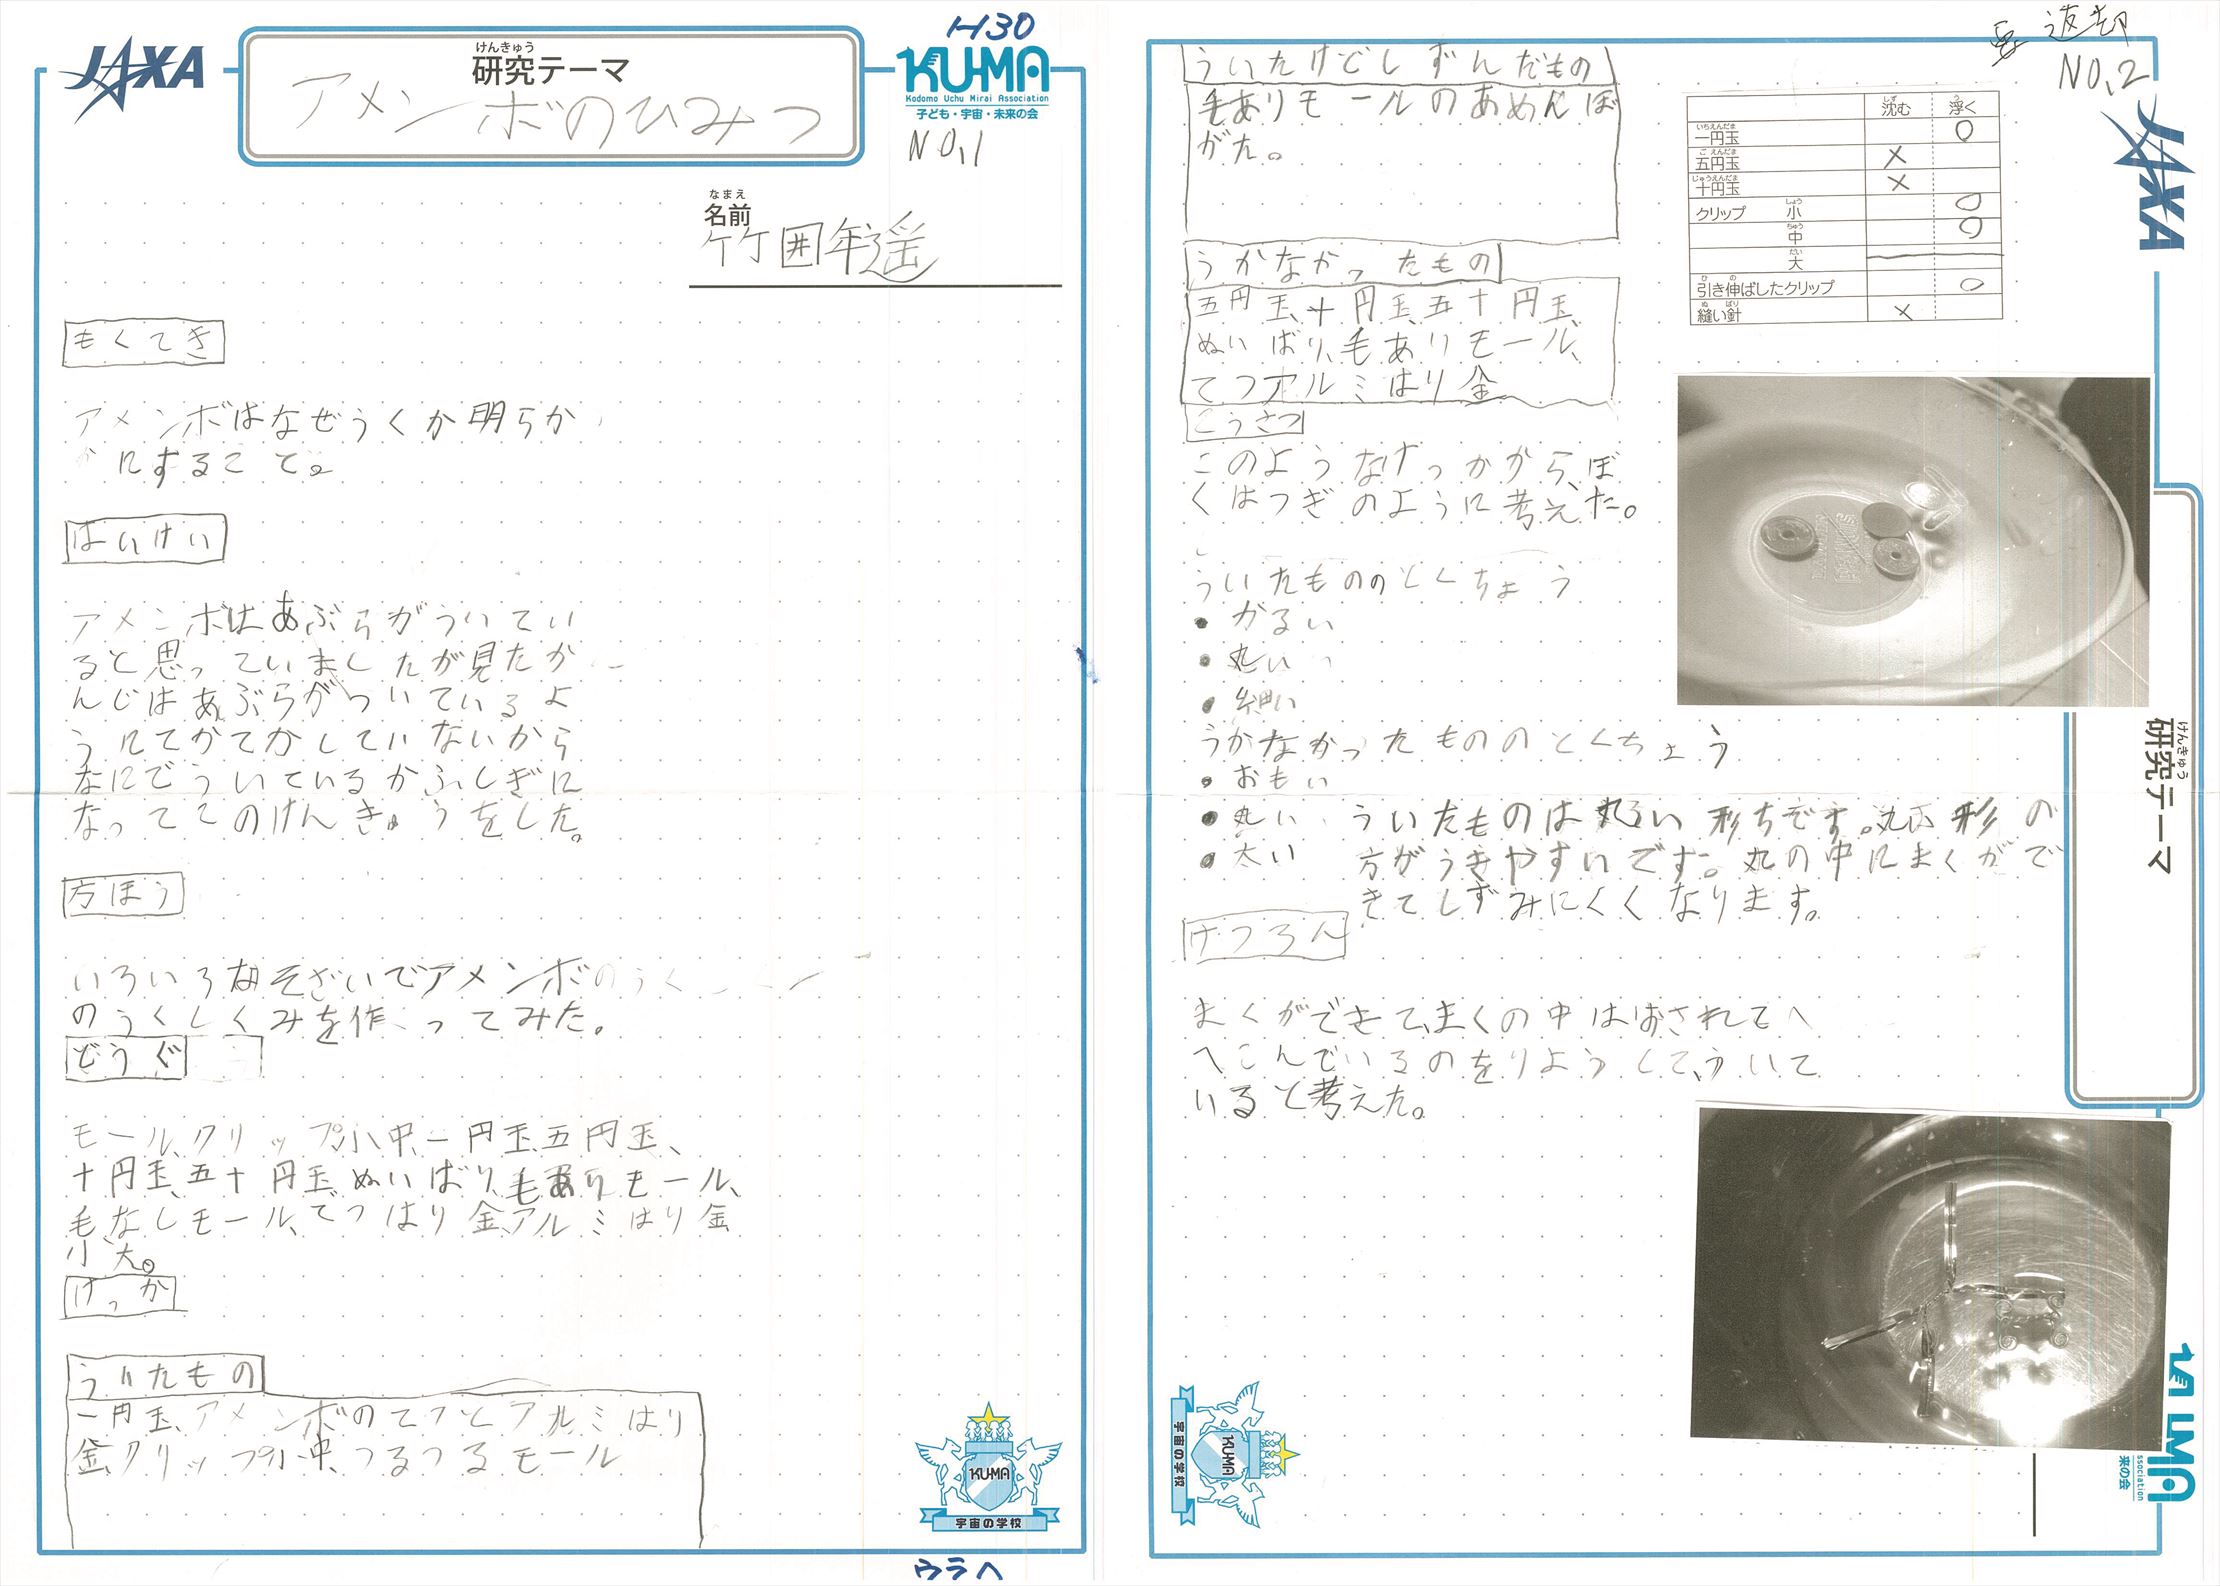 H30
JAXA
けんきゅう
研究テーマ
アメンボのひみつ
KU-MA
Kodomo Uchu Mirai Association
子ども・宇宙・未来の会
NO,1
なまえ
名前
もくてき
アメンボはなぜうくか明らか
にすること。
はいけい
アメンボはあぶらがういてい
ると思っていましたが見たか
んじはあぶらがついているよ
うにてかてかしていないから
なにでういているかふしぎに
なってこのけんきゅうをした。
方ほう
いろいろなそざいでアメンボ
のうくしくみを作ってみた。
どうぐ
モール、クリップ小、中、一円玉、五円玉、
十円玉、五十円玉、ぬいばり、毛ありモール、
毛なしモール、てつはり金、アルミはり金
小、大。
けっか
ういたもの
一円玉、アメンボのてつとアルミはり
金、クリップ小、中、つるつるモール
KU-MA
宇宙の学校
ウラへ
返却
NO,2
ういたけどしずんだもの
毛ありモールのあめんぼ
がた。
うかなかったもの
五円玉、十円玉、五十円玉、
ぬいばり、毛ありモール、
てつアルミはり金
こうさつ
このようなけっかから、ぼ
くはつぎのように考えた。
ういたもののとくちょう
• かるい
• 丸い
• 細い
うかなかったもののとくちょう
• おもい
• 丸い
• 太い
ういたものは丸い形ちです。丸い形の
方がうきやすいです。丸の中にまくがで
きてしずみにくくなります。
けつろん
まくができて、まくの中はおされてへ
へこんでいるのをりようして、ういて
いると考えた。
しず う
沈む 浮く
いちえんだま
一円玉 ○
ごえんだま
五円玉 ×
じゅうえんだま
十円玉 ×
しょう
クリップ 小 ○
ちゅう
中 ○
だい
大
ひ の
引き伸ばしたクリップ ○
ぬ ばり
縫い針 ×
JAXA
けんきゅう
研究テーマ
KU-MA
宇宙の学校
ssociation
来の会